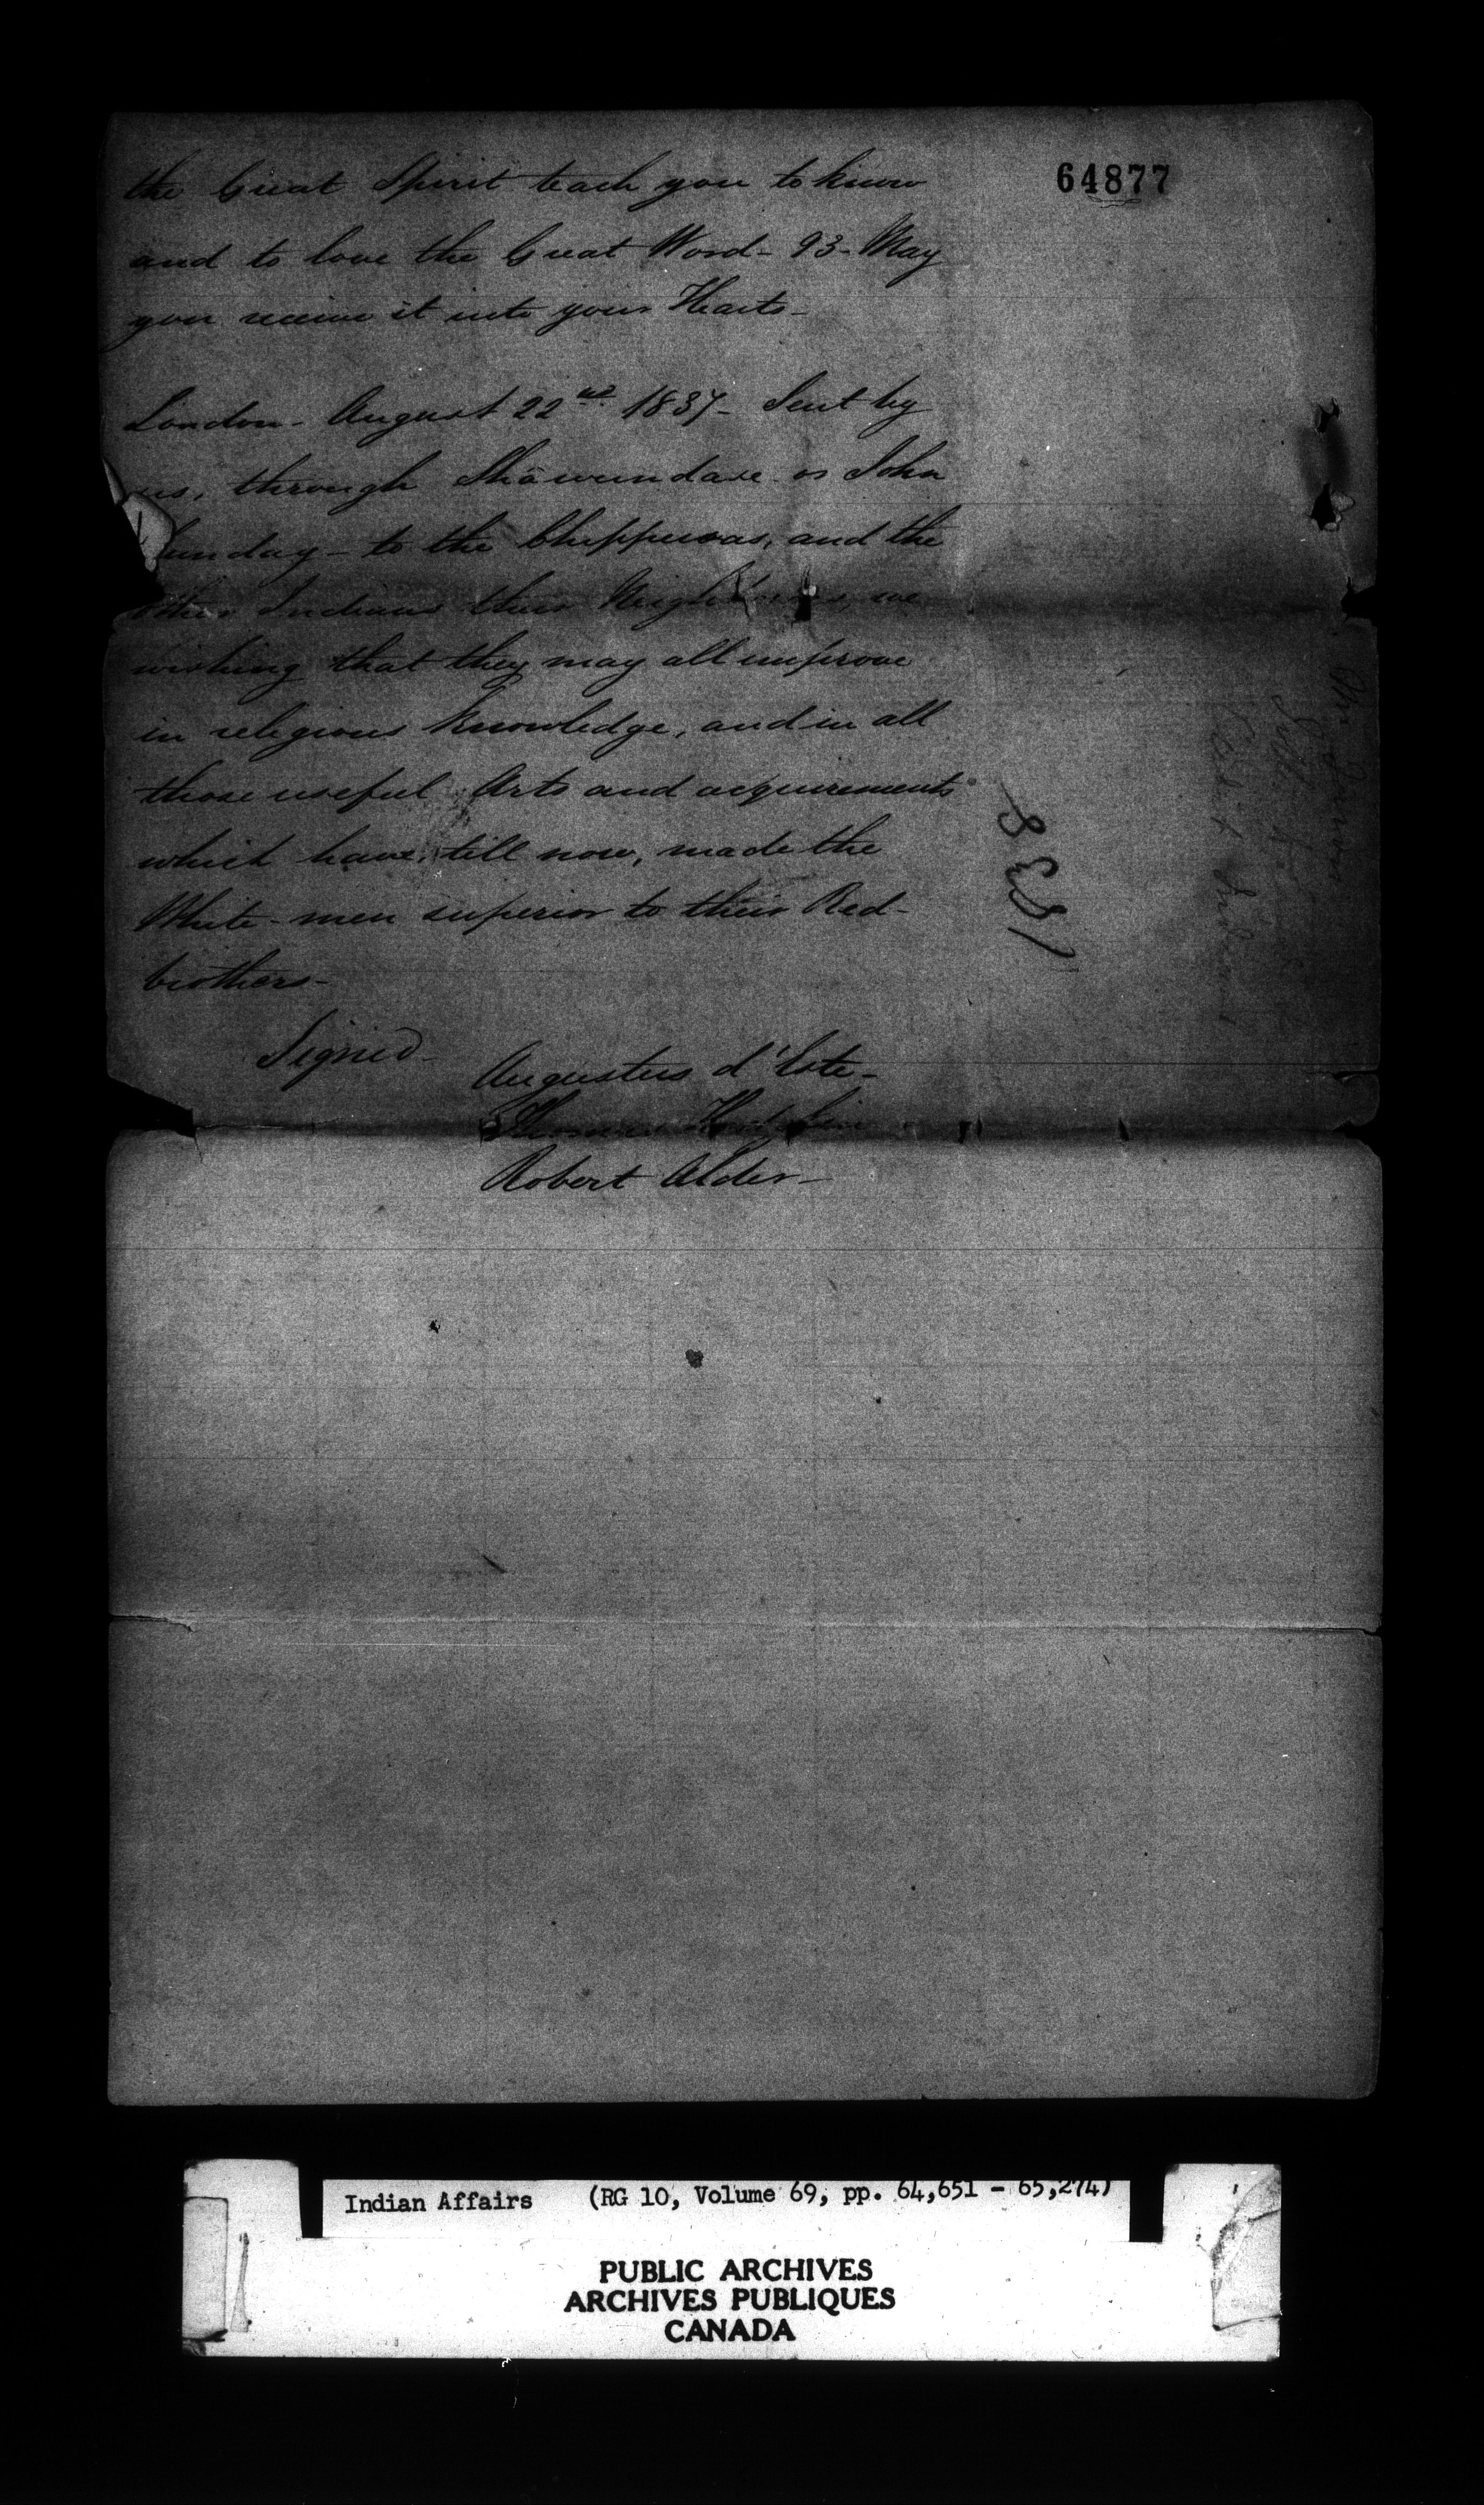 64877
the Great Spirit teach you to know
and to love the Great Word - 93 - May
you receive it into your Hearts -
London - August 22nd 1837 - Sent by
us, through Shāwundase or John
Sunday - to the Chippewas, and the
other Indians their Neighbours, we
wishing that they may all improve
in religious knowledge, and in all
those useful Arts and acquirements
which have, till now, made the
White-men superior to their Red-
brothers -
Signed -
Augustus d'Este -
Thomas Hodgkin
Robert Alder -
1838
Indian Affairs (RG 10, Volume 69, pp. 64,651 - 65,274)
PUBLIC ARCHIVES
ARCHIVES PUBLIQUES
CANADA